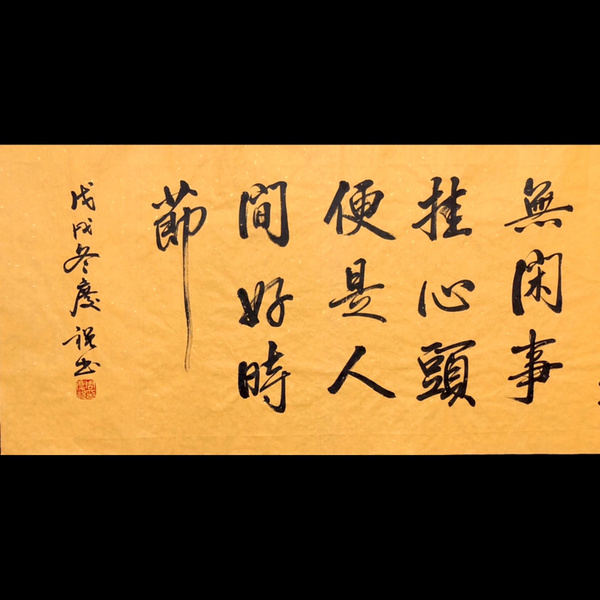 無閑事
挂心頭
便是人
間好時
節
戊戌冬慶祝书